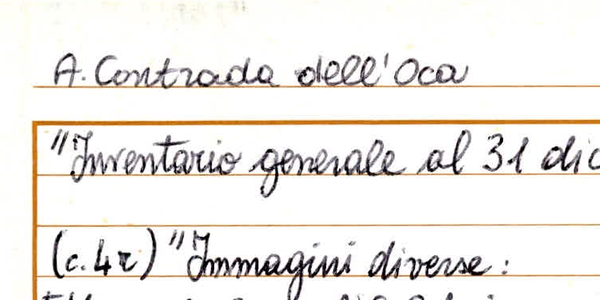 A. Contrada dell'Oca
"Inventario generale al 31 dic
(c. 4r) "Immagini diverse: